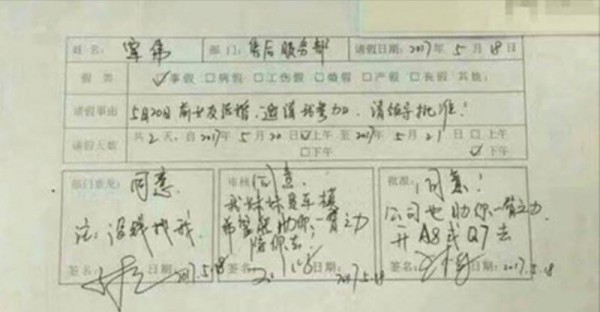 姓名： 军伟 部门： 售后服务部 请假日期： 2017年5月18日
假类 ☑事假 □病假 □工伤假 □婚假 □产假 □丧假 其他：
请假事由 5月20日前女友结婚，邀请我参加，请领导批准！
请假天数 共2天，自2017年5月20日☑上午 至2017年5月21日□上午
□下午 ☑下午
部门意见： 同意
注：没钱找我
签名： 日期： 2017.5.18
审核： 同意
我妹妹是车模
希望能助你一臂之力
陪你去！
签名： 日期： 2017.5.18
批准： 同意！
公司也助你一臂之力
开A8或Q7去
签名： 日期： 2017.5.18